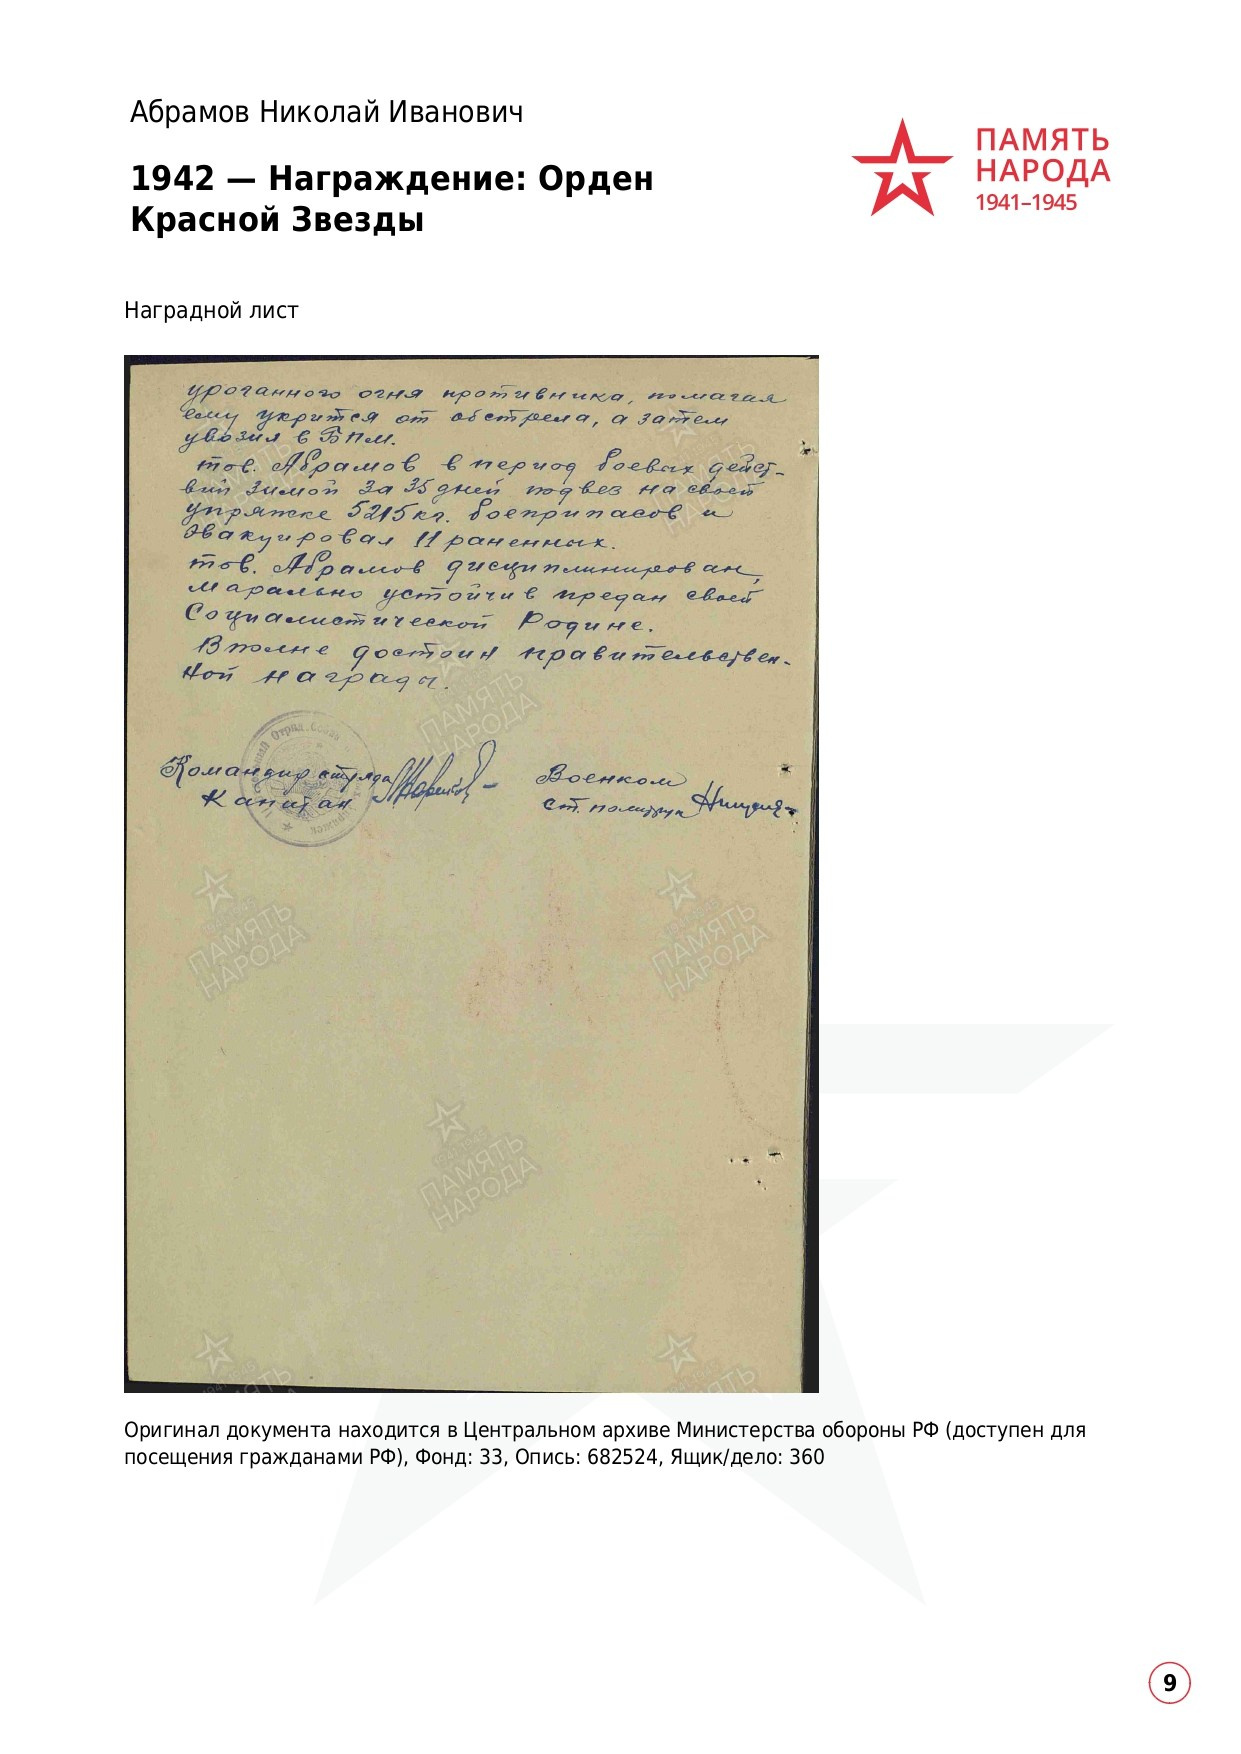 Абрамов Николай Иванович
ПАМЯТЬ
НАРОДА
1941–1945
1942 — Награждение: Орден
Красной Звезды
Наградной лист
ураганного огня противника, помагая
ему укрится от обстрела, а затем
увозил в БПМ.
тов. Абрамов в период боевых дейст-
вий зимой за 35 дней подвез на своей
упряжке 5215 кг. боеприпасов и
эвакуировал 11 раненных.
тов. Абрамов дисциплинирован,
марально устойчив предан своей
Социалистической Родине.
Вполне достоин правительствен-
ной награды.
Командир отряда
Капитан
Военком
ст. политрук
ПАМЯТЬ
НАРОДА
Оригинал документа находится в Центральном архиве Министерства обороны РФ (доступен для
посещения гражданами РФ), Фонд: 33, Опись: 682524, Ящик/дело: 360
9